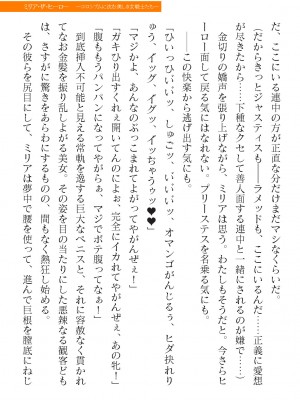 ミリア・ザ・ヒーロー ～スカトロジムに沈む美しき女戦士たち～
だ、ここにいる連中の方が正直な分だけまだマシなくらいだ。
（だからきっとジャスティスも――ラメッドも、ここにいるんだ……正義に愛想
が尽きたから……下種なクセして善人面する連中と一緒にされるのが嫌で……）
　金切りの嬌声を張り上げながら、ミリアは思う。わたしもそうだと。今さらヒ
ーロー面して戻る気にはなれない。プリーステスを名乗る気にも。
　――この快楽から逃げ出す気にも。
「ひいっひいいッ、しゅごッ、いいいッ、オマンコがんじるうっ、ヒダ抉れり
ゅうっ、イッグ、イッグッ、イッちゃうゥッ♥♥」
「マジかよ、あんなのぶっこまれてよがってやがんぜぇ！」
「ガキひり出すくれぇ開いてんのによぉ、完全にイカれてやがんぜぇ、あの牝！」
「腹もうパンパンになってやがらぁ、マジでボテ腹ってなぁ！」
　到底挿入不可能と見える常軌を逸する巨大なペニスと、それに容赦なく貫かれ
てなお金髪を振り乱しよがる美女。その姿を目の当たりにした悪辣なる観客ども
は、さすがに驚きをあらわにするものの、間もなく熱狂し始める。
　その彼らを尻目にして、ミリアは夢中で腰を使って、進んで巨根を膣底にねじ